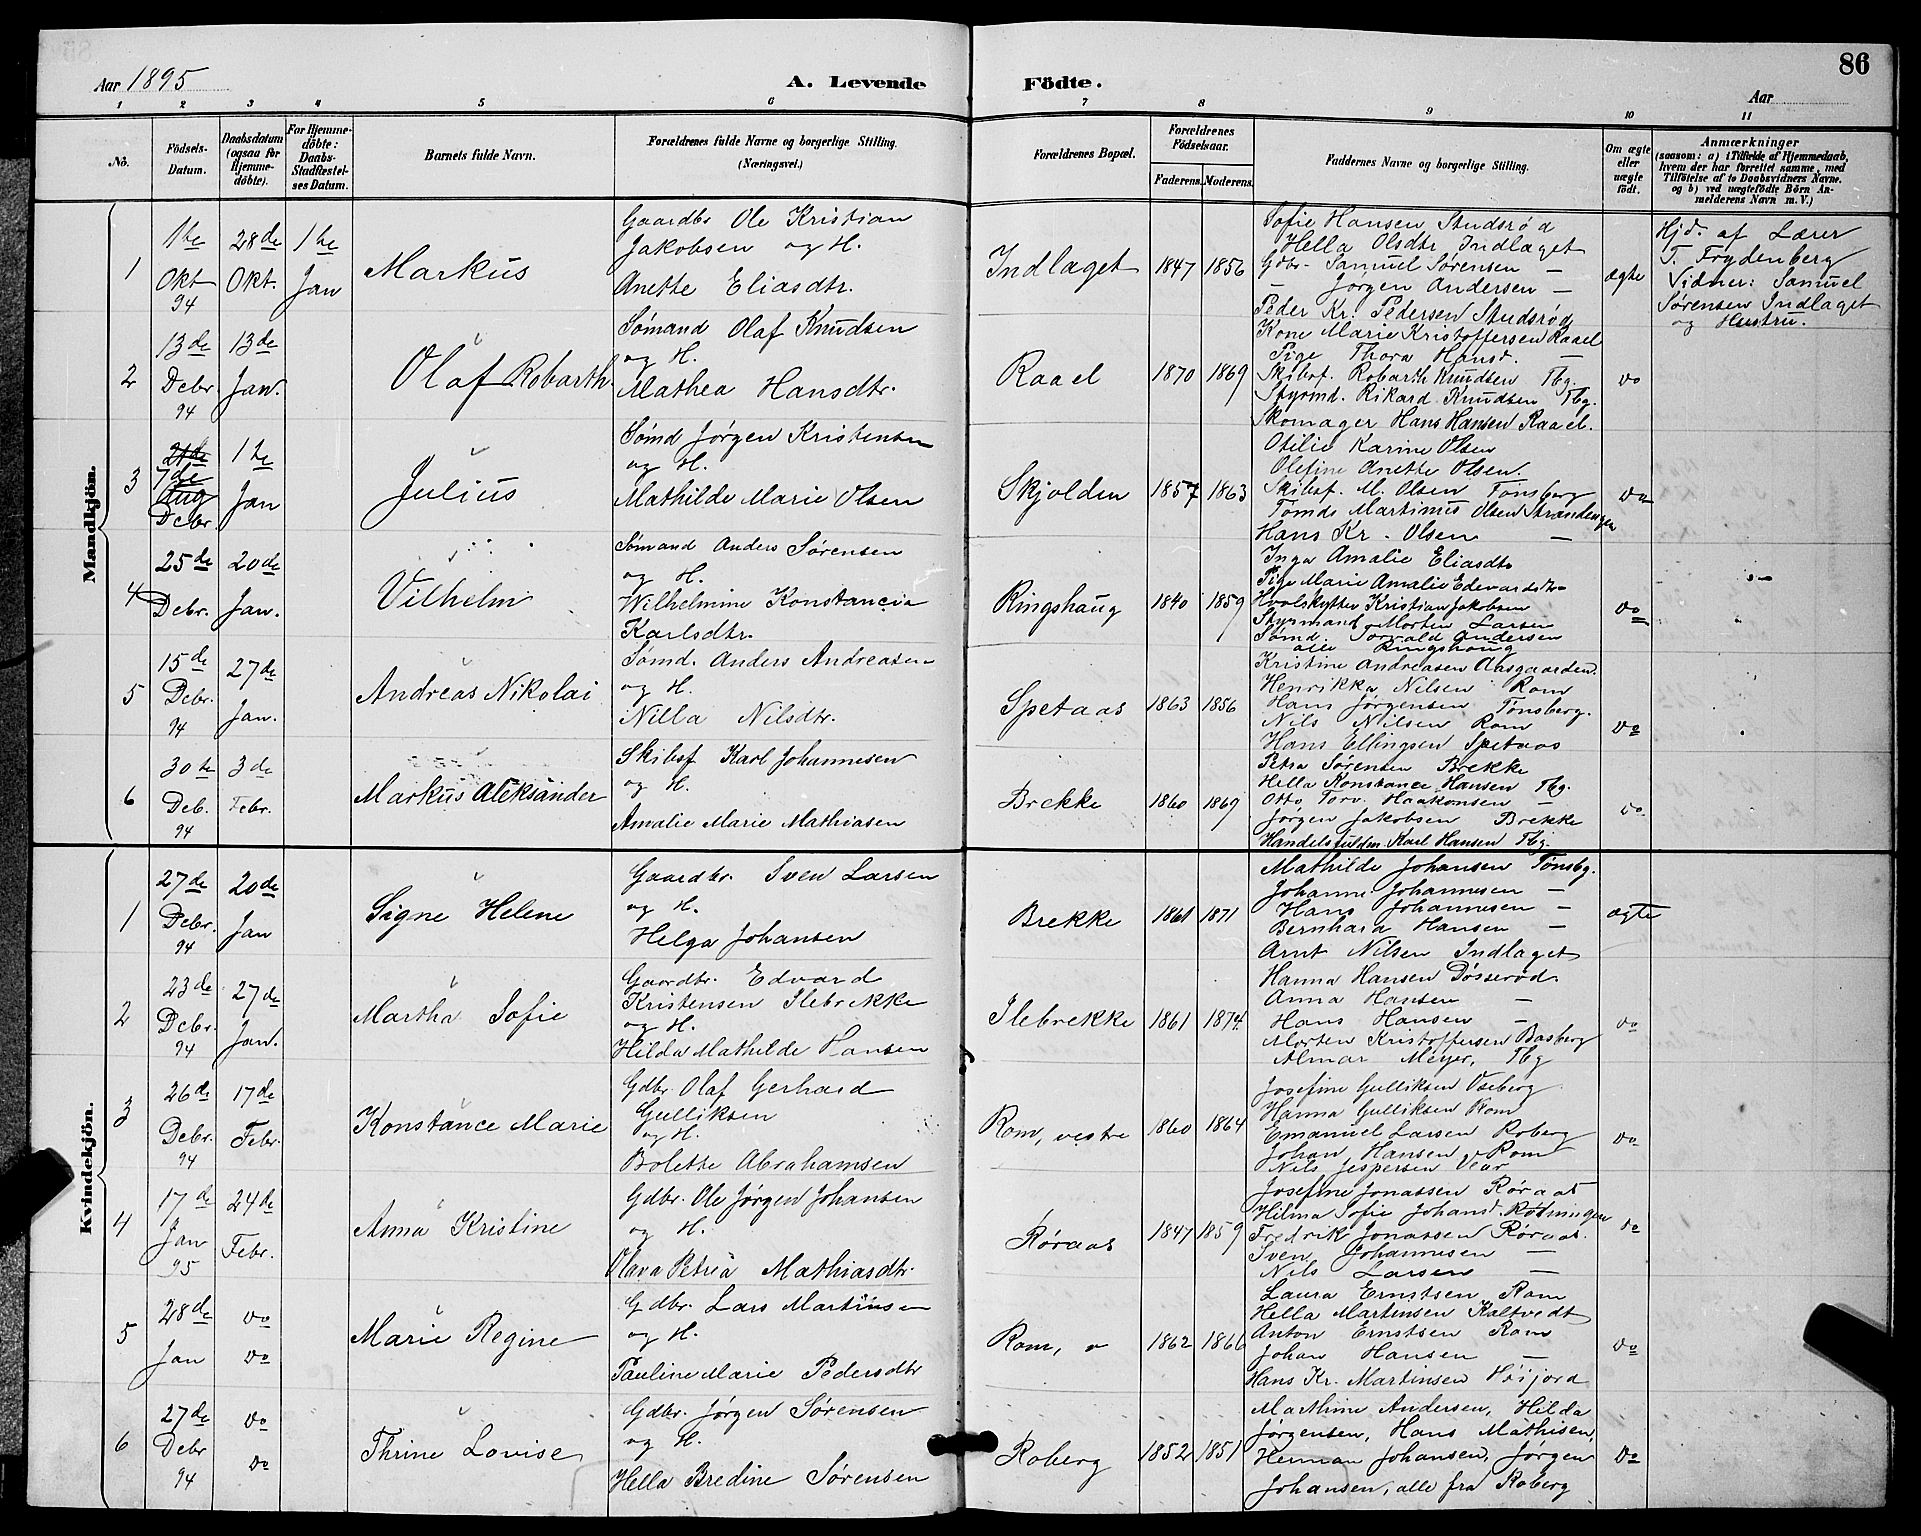 86
Aar 1895
A. Levende Födte.
Aar
1 2 3 4 5 6 7 8 9 10 11
No.
Födsels-Datum.
Daabsdatum (ogsaa for Hjemme-döbte).
For Hjemme-döbte: Daabs-Stadfæstel-ses Datum.
Barnets fulde Navn.
Forældrenes fulde Navne og borgerlige Stilling. (Næringsvei.)
Forældrenes Bopæl.
Forældrenes Födselsaar.
Faderens. Moderens.
Faddernes Navne og borgerlige Stilling.
Om ægte eller uægte födt.
Anmærkninger
(saasom: a) i Tilfælde af Hjemmedaab, hvem der har forrettet samme, med Tilföielse af to Daabsvidners Navne, og b) ved uægtefödte Börn An-melderens Navn m. V.)
Mandkjön.
1
1te Okt 94
28de Okt.
1te Jan
Markus
Gaardbr Ole Kristian
Jakobsen og H.
Anette Eliasdtr.
Indlaget
1847 1856
Sofie Hansen Studsrød
Hella Olsdtr. Indlaget
Gdbr. Samuel Sørensen —
— Jørgen Andersen —
Peder Kr. Pedersen Studsrød
ægte
Hjd. af Lærer
T. Frydenberg
Vidner: Samuel
Sørensen Indlaget
og Hustru.
2
13de Debr 94
13de Jan.
Olaf Robarth.
Sømand Olaf Knudsen
og H.
Mathea Hansdtr.
Raael
1870 1869
Kone Marie Kristoffersen Raael
Pige Thora Hansd. —
Skibsf. Robarth Knudsen Tbg.
Styrmd. Rikard Knudsen Tbg.
Skomager Hans Hansen Raael.
do
3
21de
7de
Aug
Debr.
1te Jan
Julius
Sømd Jørgen Kristensen
og H.
Mathilde Marie Olsen
Skjolden
1857 1863
Otilie Karine Olsen
Olefine Anette Olsen.
Skibsf. M. Olsen Tønsberg
Tømds Martinus Olsen Strandengen
Hans Kr. Olsen —
do
4
25de Debr.
20de Jan.
Vilhelm
Sømand Anders Sørensen
og H.
Wilhelmine Konstancia
Karlsdtr.
Ringshaug
1840 1859
Inga Amalie Eliasdtr
Pige Marie Amalie Edevardsdtr
Hvalskytter Kristian Jakobsen
Styrmand Morten Larsen
Sømd. Torvald Andersen
alle Ringshaug
do
5
15de Debr. 94
27de Jan.
Andreas Nikolai
Sømd. Anders Andreasen
og H.
Nilla Nilsdtr.
Spetaas
1863 1856
Kristine Andreasen Aasgaarden.
Henrikka Nilsen Rom
Hans Jørgensen Tønsberg.
Nils Nilsen Rom
Hans Ellingsen Spetaas
do
6
30te Deb. 94
3de Febr.
Markus Aleksander
Skibsf Karl Johannesen
og H.
Amalie Marie Mathiasen
Brekke
1860 1869
Petra Sørensen Brekke
Hella Konstance Hansen Tbg.
Otto Torv. Haakonsen —
Jørgen Jakobsen Brekke
Handelsfuldm. Karl Hansen Tbg.
do.
Kvindekjön.
1
27de Debr. 94
20de Jan
Signe Helene
Gaardbr. Sven Larsen
og H.
Helga Johansen
Brekke
1861 1871
Mathilde Johansen Tønsbg.
Johanne Johannesen —
Hans Johannesen —
Bernhard Hansen —
Arnt Nilsen Indlaget
ægte
2
23de Debr. 94
27de Jan.
Martha Sofie
Gaardbr. Edvard
Kristensen Ilebrekke
og H.
Hilda Mathilde Hansen
Ilebrekke
1861 1874.
Hanna Hansen Døsserød.
Anna Hansen —
Hans Hansen —
Morten Kristoffersen Basberg
Almar Meyer, Tbg
do
3
26de Debr. 94
17de Febr.
Konstance Marie
Gdbr. Olaf Gerhard
Gulliksen
og H.
Bolette Abrahamsen
Rom, vestre
1860 1864
Josefine Gulliksen Vseberg
Hanna Gulliksen Rom
Emanuel Larsen Roberg
Johan Hansen v Rom
Nils Jespersen Vear
do
4
17de Jan 95
24de Febr.
Anna Kristine
Gdbr. Ole Jørgen Johansen
og H.
Olava Petrea Mathiasdtr.
Røraas
1847 1859
Josefine Jonassen Røraas
Hilma Sofie Johansd. Rødningen
Fredrik Jonassen Røraas.
Sven Johannesen —
Nils Larsen —
do
5
28de Jan
do do
Marie Regine
Gdbr. Lars Martinsen
og H.
Pauline Marie Pedersdtr
Rom, v
1862 1866
Laura Ernstsen Rom
Hella Martensen Kaltvedt
Anton Ernstsen Rom
Johan Hansen —
Hans Kr. Martinsen Høijord
do
6
27de Debr 94
do do
Thrine Lovise
Gdbr. Jørgen Sørensen
og H.
Hella Bredine Sørensen
Roberg
1852 1851
Marthine Andersen, Hilda
Jørgensen, Hans Mathisen,
Herman Johansen, Jørgen
Johansen, alle fra Roberg
do